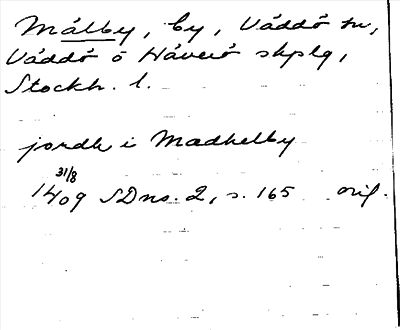 Målby, by, Väddö sn,
Väddö o Häverö skplg,
Stockh. l.
jordh i Madhelby
31/8
1409 SDns. 2, s. 165 orig.